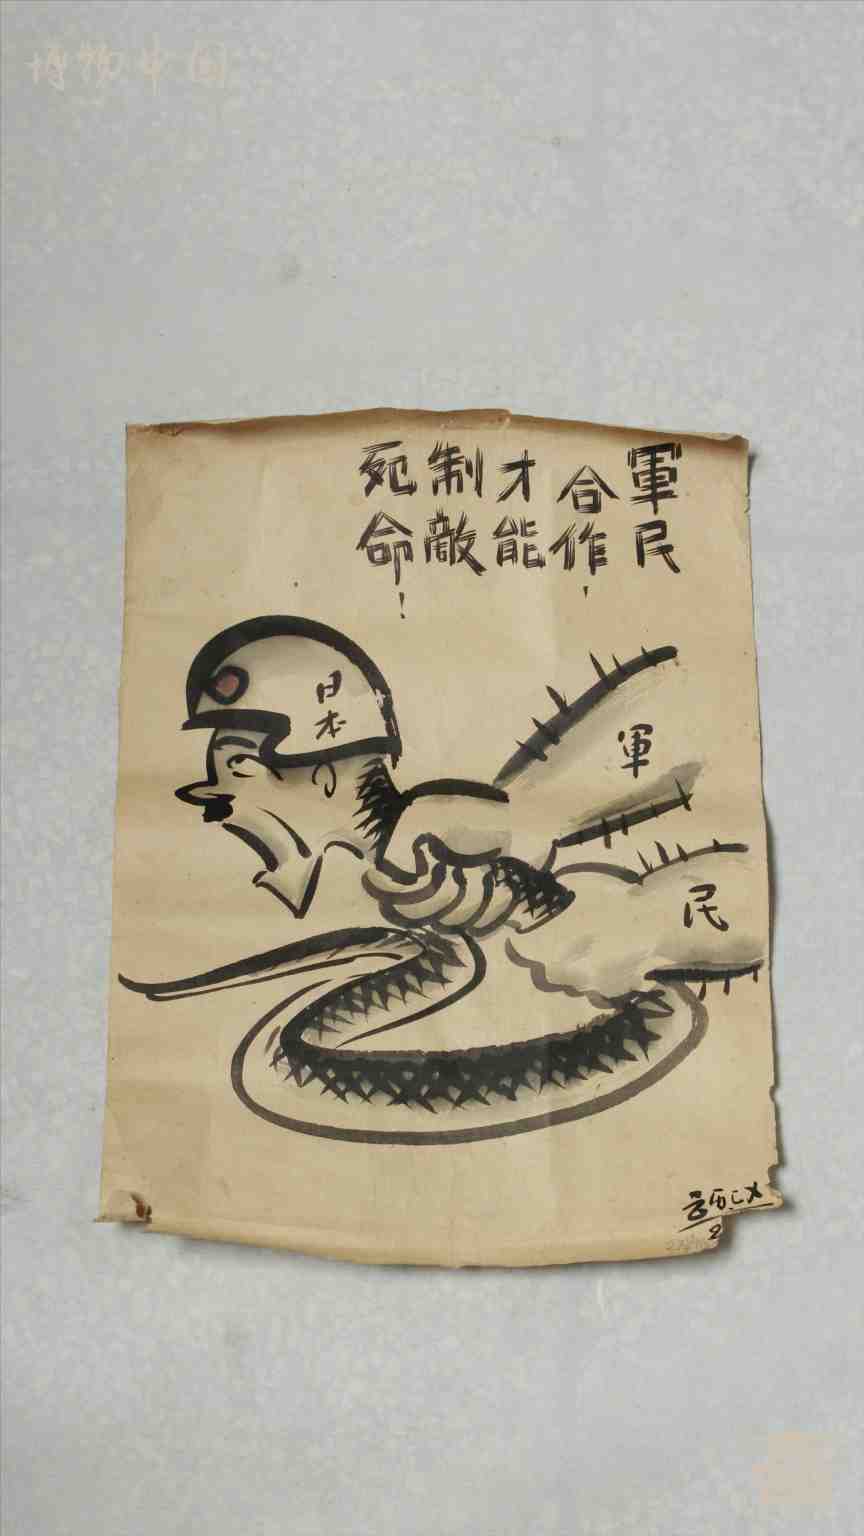 博物中国
軍民
合作，
才能
制敵
死命！
日本
軍
民